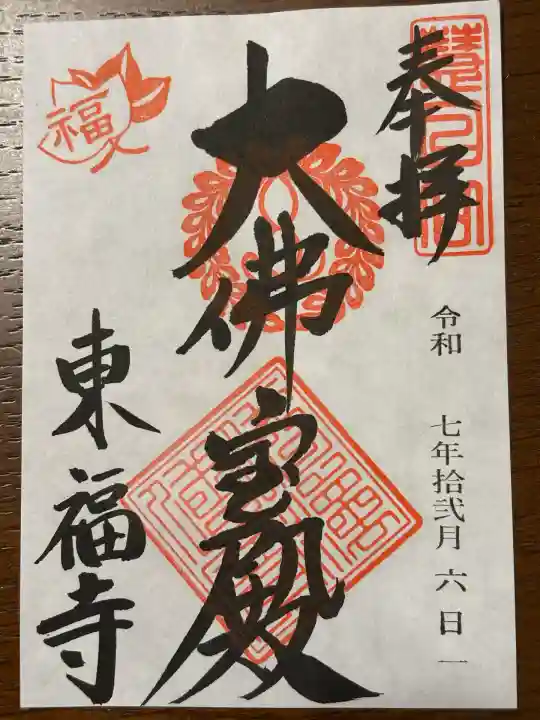 奉拝
令和 七年拾弐月 六日一
大佛宝殿
東福寺
福